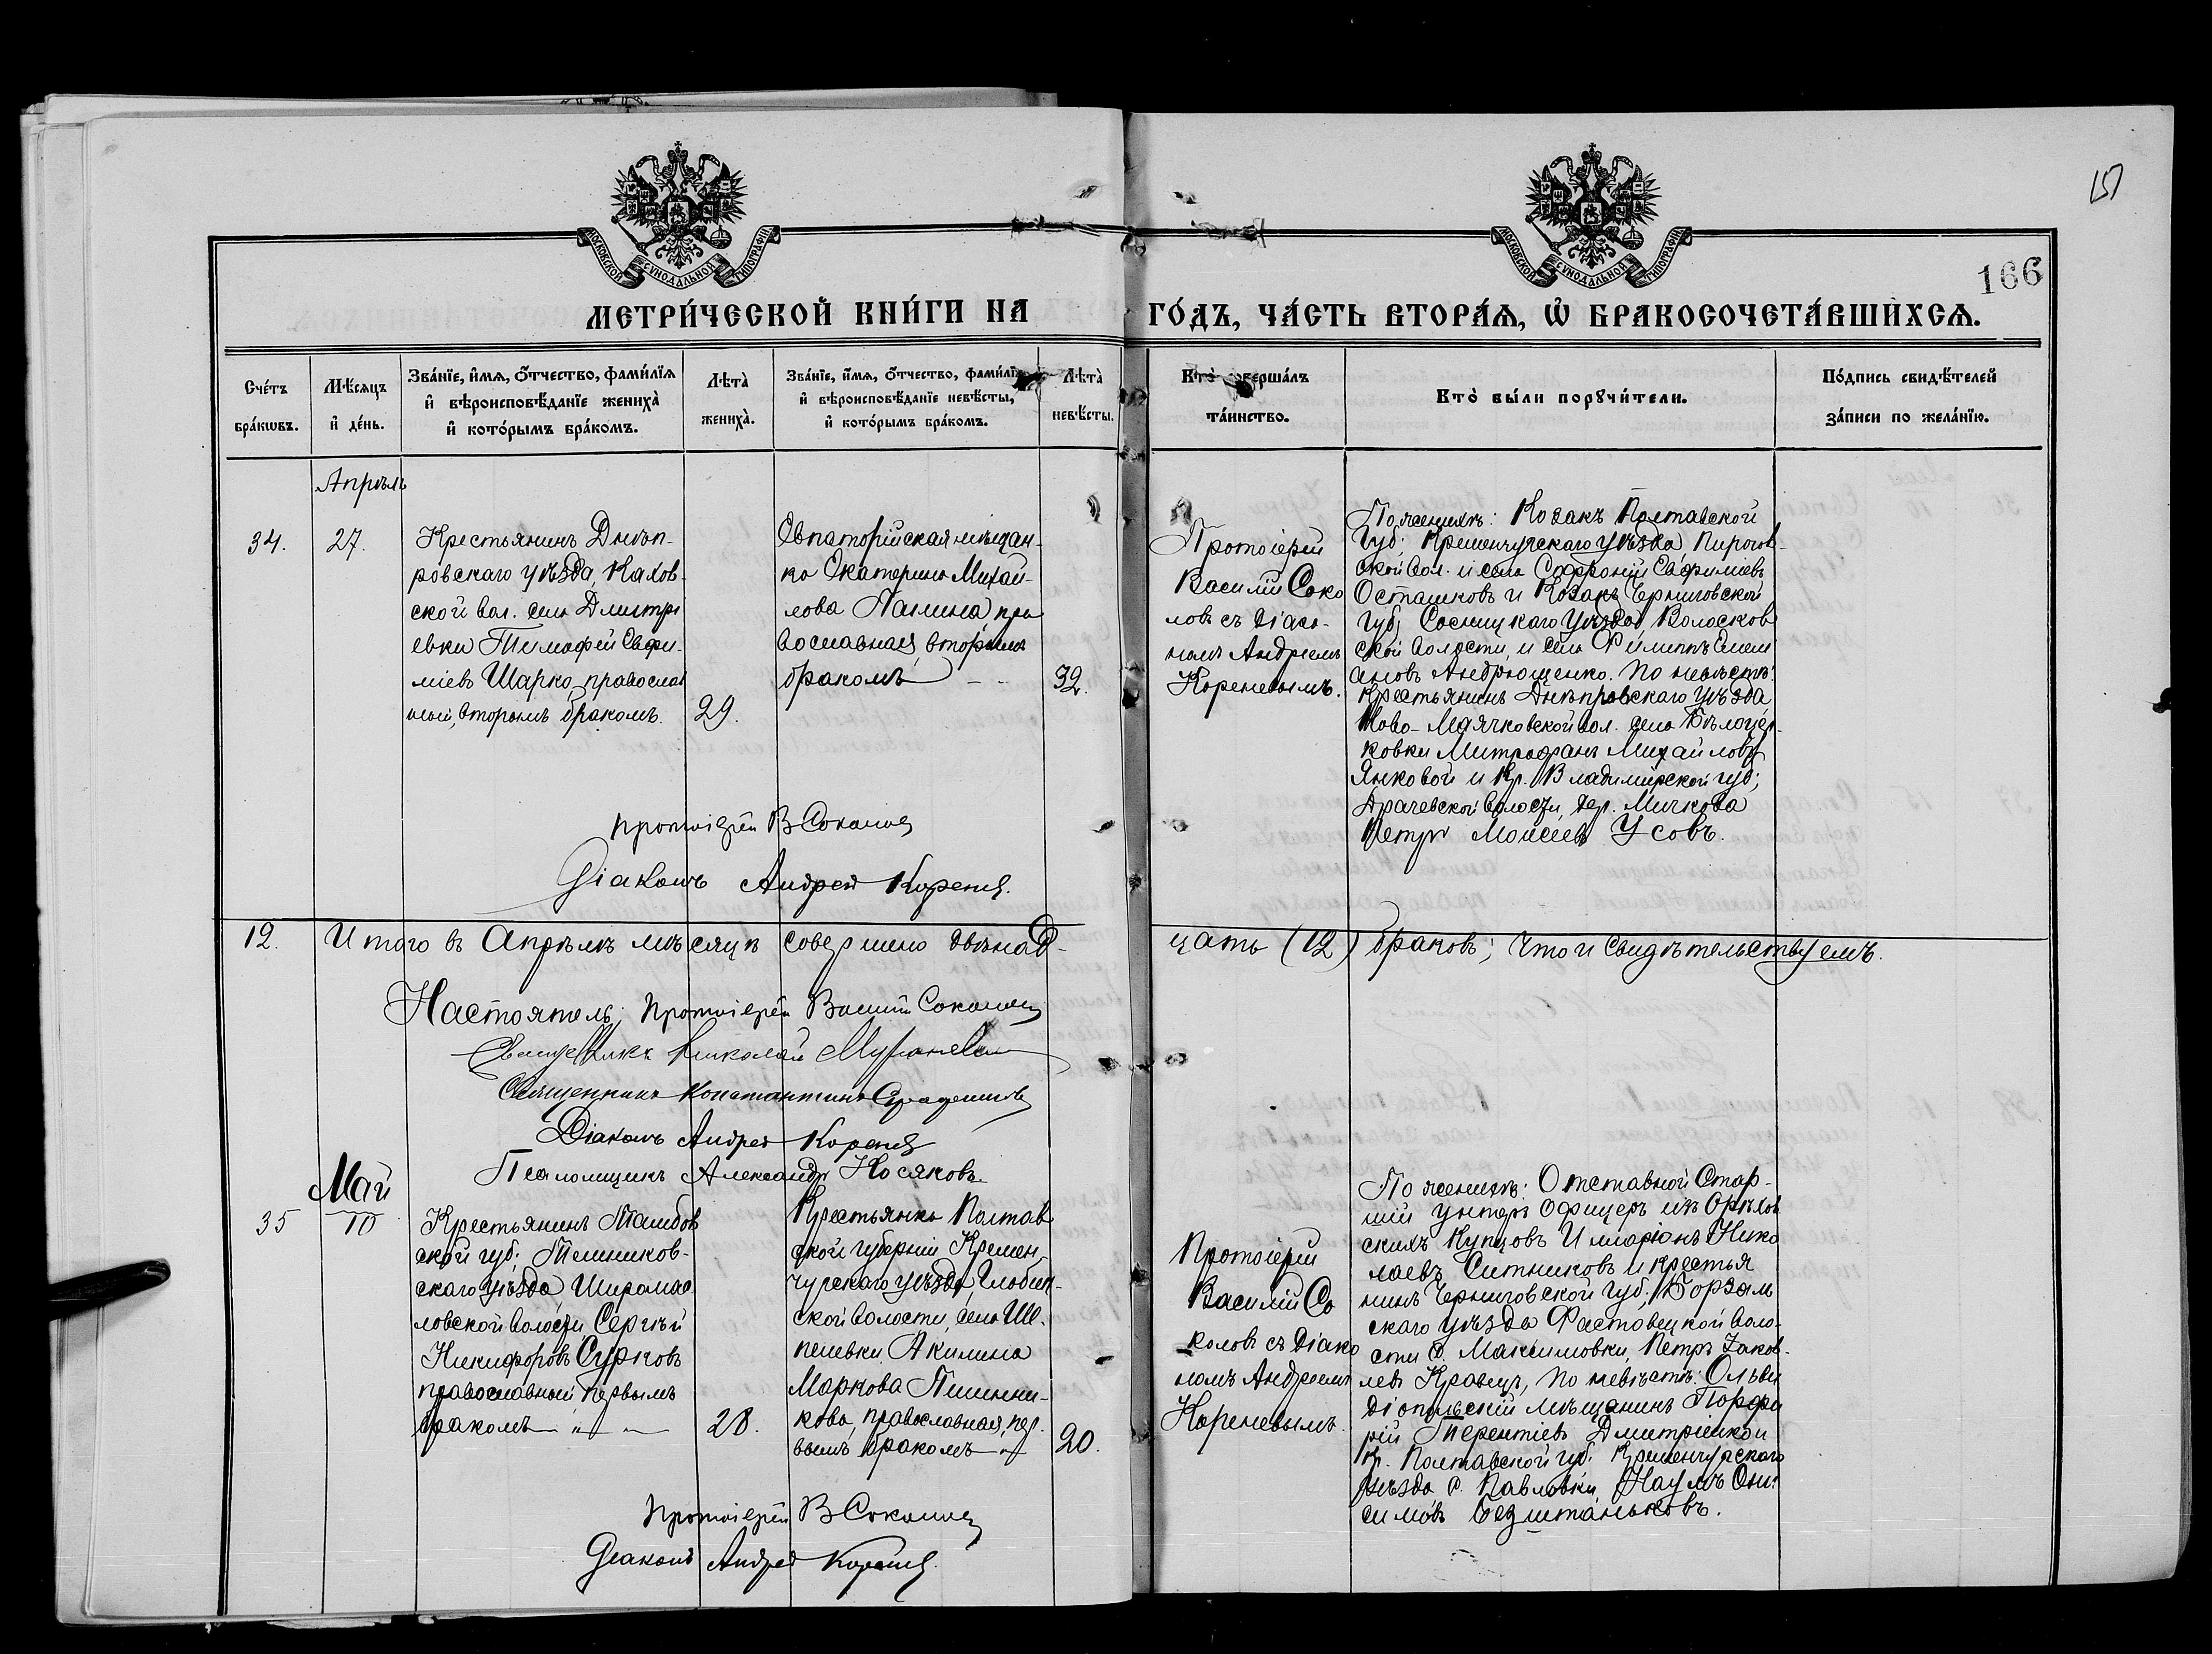 МОСКОВСКОЙ СУНОДАЛЬНОЙ ТИПОГРАФІИ
МОСКОВСКОЙ СУНОДАЛЬНОЙ ТИПОГРАФІИ
151
166
МЕТРИ́ЧЕСКОЙ КНИ́ГИ НА ГО́ДЪ, ЧА́СТЬ ВТОРА́Я, Ѡ БРАКОСОЧЕТА́ВШИХСЯ.
Сче́тъ бра́кѡвъ.
Мѣ́сяцъ и де́нь.
Зва́нїе, и́мя, о́тчество, фами́лїя
и вѣроисповѣ́данїе жениха̀
и кото́рымъ бра́комъ.
Лѣта̀ жениха̀.
Зва́нїе, и́мя, о́тчество, фами́лїя
и вѣроисповѣ́данїе невѣ́сты,
и кото́рымъ бра́комъ.
Лѣта̀ невѣ́сты.
Кто̀ соверша́лъ
та́инство.
Кто̀ бы́ли порꙋчи́тели.
По́дпись свидѣ́телей
за́писи по жела́нїю.
Апрѣль
34.
27.
Крестьянинъ Днѣп-
ровскаго уѣзда, Кахов-
ской вол. села Дмитрі
евки Тимофей Евфи-
міевъ Шарко, православ
ный, вторымъ бракомъ.
29.
Евпаторійская мѣщан-
ка Екатерина Михай-
лова Панина, пра
вославная, вторымъ
бракомъ
32.
Протоіерей
Василій Соко
ловъ съ діако-
номъ Андреемъ
Кореневымъ.
По женихѣ: Козакъ Полтавской
Губ; Кременчугскаго уѣзда, Пирогов-
ской вол. и села Софроній Евфиміевъ
Осташковъ и Козакъ Черниговской
губ; Сосницкаго уѣзда, Волосков
ской волости, и села Филиппъ Емели
ановъ Андрющенко. По невѣстѣ:
Крестьянинъ Днѣпровскаго уѣзда
Ново-Маячковской вол. села Бѣлоцер-
ковки Митрофанъ Михайловъ
Янковой и Кр. Владимірской губ;
Драчевской волости, дер. Мичкова
Петръ Моисеевъ Усовъ.
Протоіерей В Соколовъ
Діаконъ Андрей Кореневъ.
12. Итого въ Апрѣлѣ мѣсяцѣ совершено двѣнад-
цать (12) браковъ; что и свидѣтельствуемъ.
Настоятель, Протоіерей Василій Соколовъ
Священникъ Николай
Священникъ Константинъ
Діаконъ Андрей Кореневъ
Псаломщикъ Александръ Носяковъ.
Май
35
10
Крестьянинъ Тамбов
ской губ; Темников-
скаго уѣзда, Широмас
ловской волости, Сергѣй
Никифоровъ Сурковъ
православный первымъ
бракомъ
28.
Крестьянка Полтав
ской губерніи Кремен-
чугскаго уѣзда, Глобин-
ской волости, села Ше-
пелевки, Акилина
Маркова Пшенни-
кова, православная, пер-
вымъ бракомъ
20.
Протоіерей
Василій Со
коловъ съ діако
номъ Андреемъ
Кореневымъ.
По женихѣ: Отставной Стар-
шій унтеръ офицеръ изъ Орѣхов
скихъ Купцовъ Илларіонъ Нико
лаевъ Ситниковъ и крестья
нинъ Черниговской губ; Борзен
скаго уѣзда Фастовецкой воло-
сти с. Максимовки, Петръ Іаков-
левъ Кравецъ, по невѣстѣ: Ольви
діопольскій мѣщанинъ Порфи
рій Терентіевъ
Кр. Полтавской губ. Кременчугскаго
уѣзда с. Павловки, Наумъ Они-
симовъ Безштаньковъ.
Протоіерей В Соколовъ
Діаконъ Андрей Кореневъ.